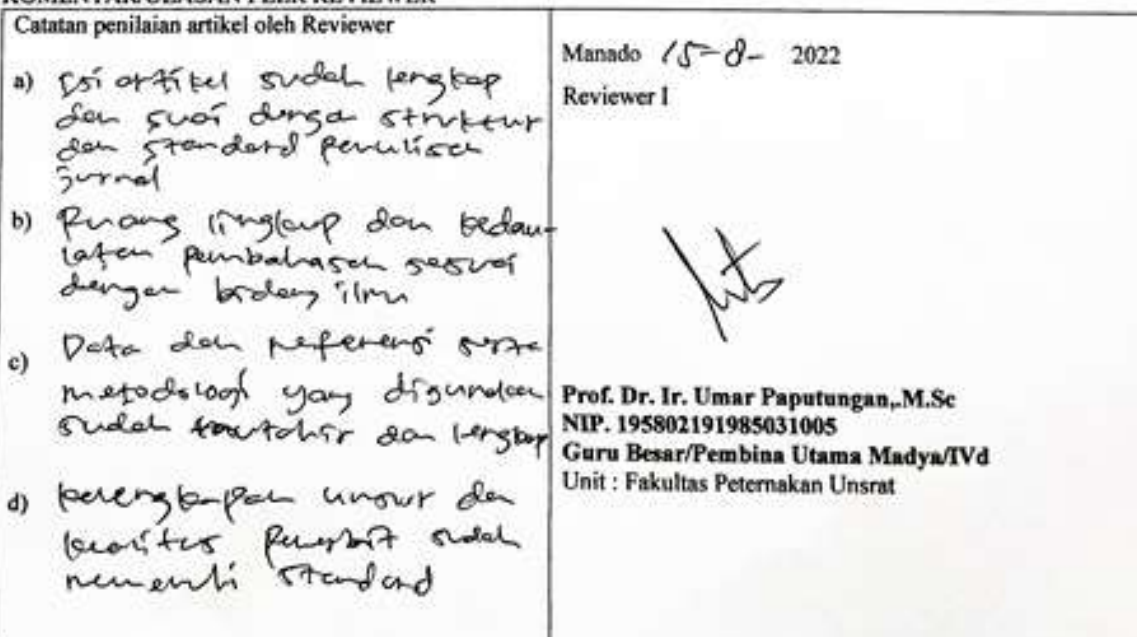 KOMENTAR/ULASAN PEER REVIEWER
Catatan penilaian artikel oleh Reviewer
a) Isi artikel sudah lengkap
dan suai dengan struktur
dan standard penulisan
jurnal
b) Ruang lingkup dan kedau-
latan pembahasan sesuai
dengan bidang ilmu
c) Data dan referensi serta
metodologi yang digunakan
sudah dan lengkap
d) kelengkapan unsur dan
kualitas Penerbit sudah
memenuhi standard
Manado 15-8- 2022
Reviewer I
Prof. Dr. Ir. Umar Paputungan,.M.Sc
NIP. 195802191985031005
Guru Besar/Pembina Utama Madya/IVd
Unit : Fakultas Peternakan Unsrat